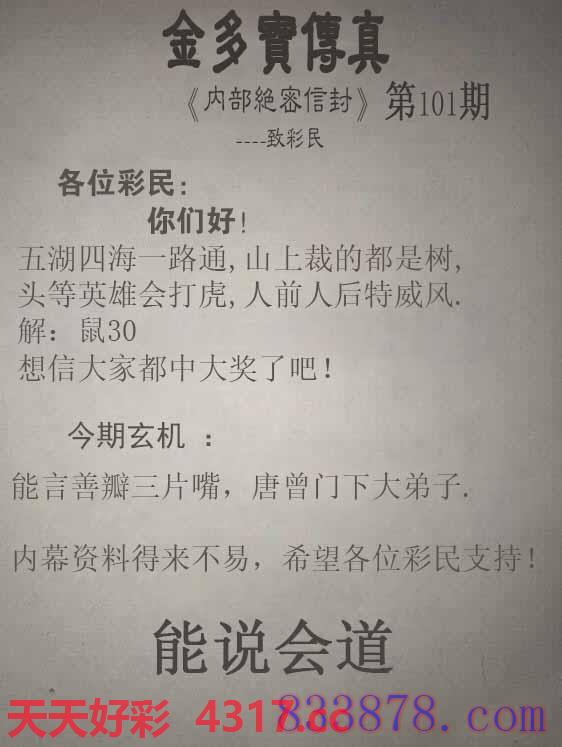 金多寶傳真
《内部絶密信封》第101期
----致彩民
各位彩民:
你们好!
五湖四海一路通,山上裁的都是树,
头等英雄会打虎,人前人后特威风.
解: 鼠30
想信大家都中大奖了吧!
今期玄机 :
能言善瓣三片嘴，唐曾门下大弟子.
内幕资料得来不易，希望各位彩民支持!
能说会道
天天好彩 4317.cc 833878.com